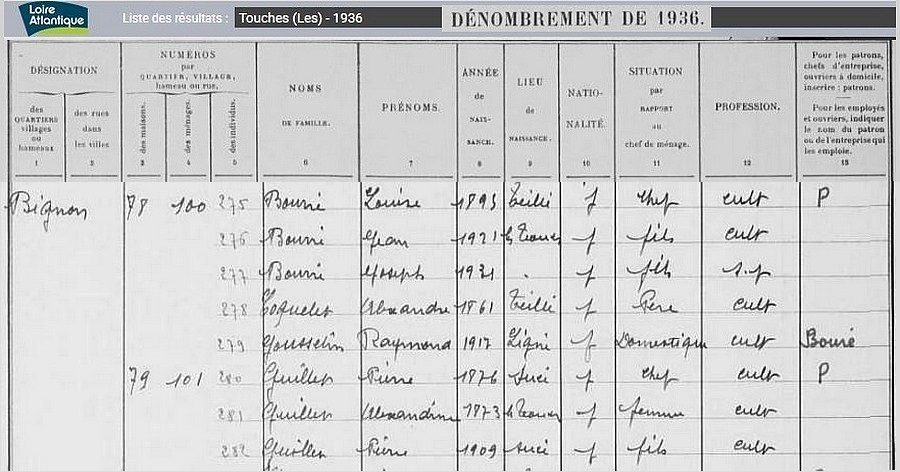 Loire Atlantique Liste des résultats : Touches (Les) - 1936 DÉNOMBREMENT DE 1936.
DÉSIGNATION
des QUARTIERS villages ou hameaux
1
des rues dans les villes
2
NUMÉROS par QUARTIER, VILLAGE, hameau ou rue.
des maisons.
3
des ménages.
4
des individus.
5
NOMS DE FAMILLE.
6
PRÉNOMS.
7
ANNÉE de NAISSANCE.
8
LIEU de NAISSANCE.
9
NATIONALITÉ.
10
SITUATION par RAPPORT au chef de ménage.
11
PROFESSION.
12
Pour les patrons, chefs d'entreprise, ouvriers à domicile, inscrire : patrons.
Pour les employés et ouvriers, indiquer le nom du patron ou de l'entreprise qui les emploie.
13
Bignon 78 100 275 Bourré Louise 1893 Teillé f chef cult P
276 Bourré Jean 1921 f fils cult
277 Bourré Joseph 1931 . f fils s.p
278 Coquelet Alexandre 1861 Teillé f Père cult
279 Gousselin Raymond 1917 Ligné f Domestique cult Bouré
79 101 280 Guillet Pierre 1876 Sucé f chef cult P
281 Guillet Alexandrine 1873 f femme cult
282 Guillet Pierre 1909 Sucé f fils cult